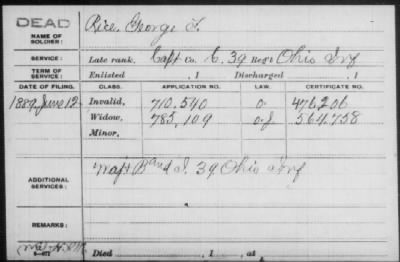 DEAD Rice, George T.
NAME OF SOLDIER:
SERVICE: Late rank, Capt Co. C, 39 Reg't Ohio Inf
TERM OF SERVICE: Enlisted , 1 Discharged , 1
DATE OF FILING. CLASS. APPLICATION NO. LAW. CERTIFICATE NO.
1889, June 12 Invalid, 710.540 476206
Widow, 785,109 564.758
Minor,
ADDITIONAL SERVICES: 39 Ohio Inf
REMARKS:
Died , 1 , at